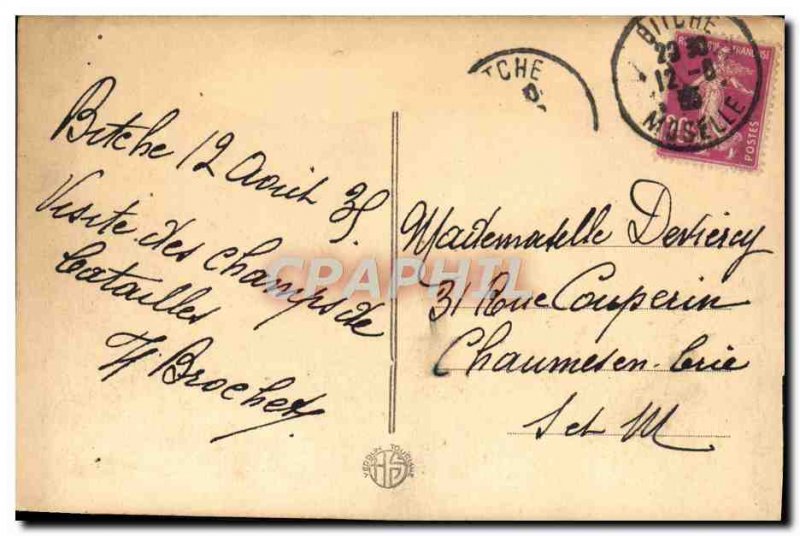 Bitche 12 Août 35
Visite des champs de
batailles
H Brochet
BITCHE
23 30
12 -8
35
MOSELLE
POSTES
TCHE
Mademoiselle
31 Rue Couperin
Chaumes en-brie
S et M
CPRAPHIL
VERDUN TOURISME